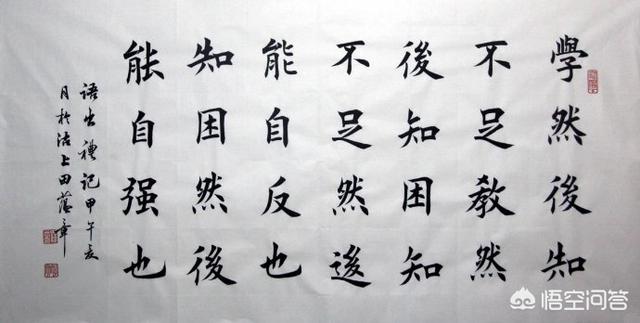 學然後知
不足教然
後知困知
不足然後
能自反也
知困然後
能自强也
语出禮记甲午亥
月於沽上田蕴章
悟空问答